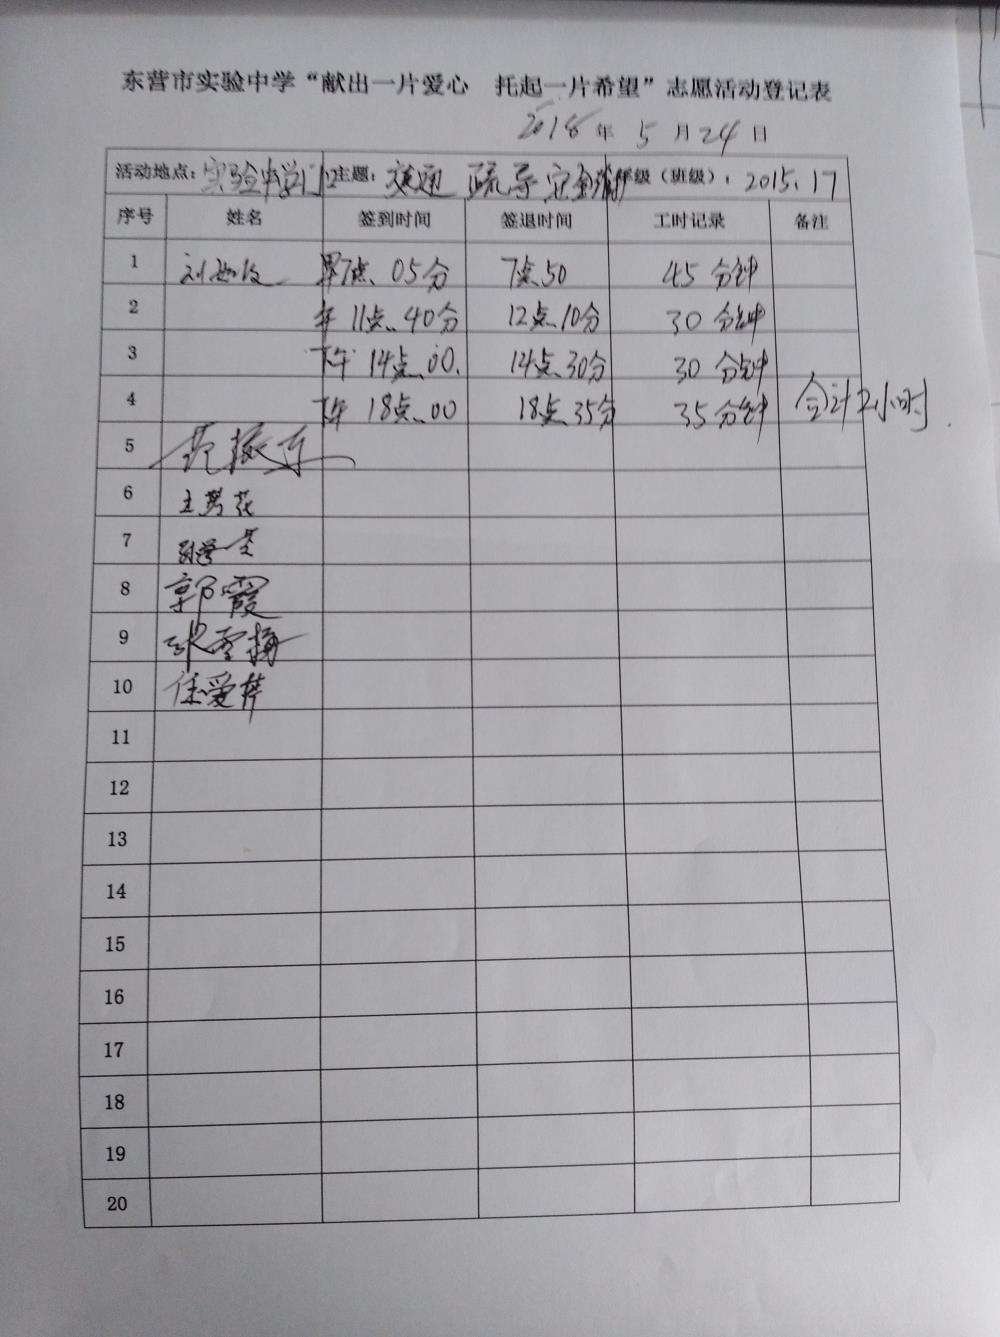 东营市实验中学“献出一片爱心 托起一片希望”志愿活动登记表
2018年5月24日
活动地点：实验中学门口 主题：交通疏导 安全 年级（班级）：2015.17
序号 姓名 签到时间 签退时间 工时记录 备注
1 早7点.05分 7点.50 45分钟
2 午11点.40分 12点.10分 30分钟
3 下午14点.00. 14点.30分 30分钟
4 下午18点.00 18点.35分 35分钟 合计2小时.
5 范振东
6
7
8 郭霞
9 张雪梅
10 任爱萍
11
12
13
14
15
16
17
18
19
20